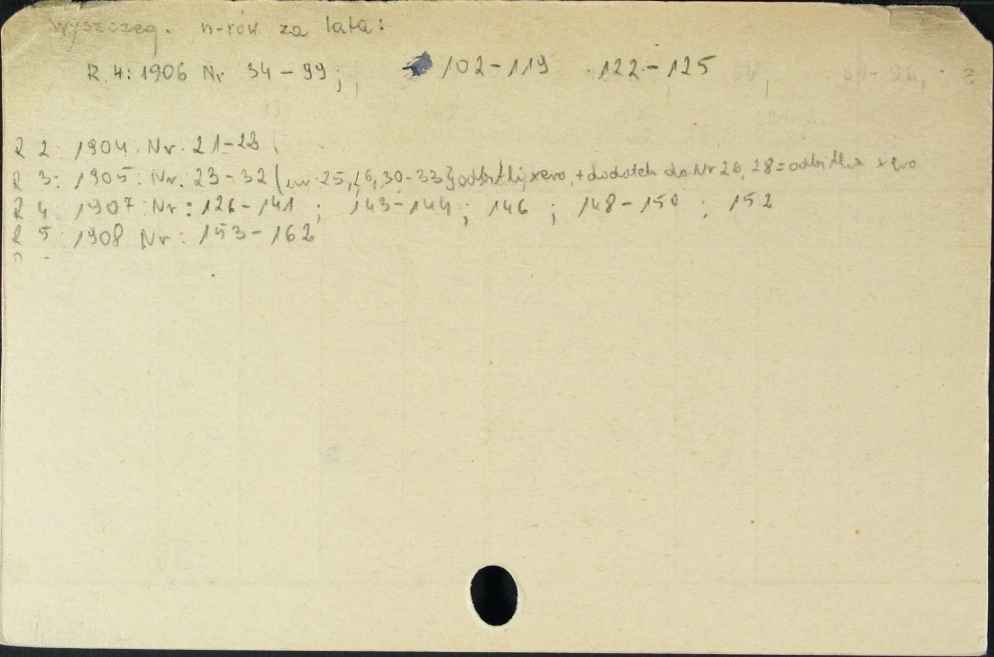 Wyszczeg. n-rów za lata:
R. 4: 1906 Nr 34-99; 102-119 122-125
R 2: 1904. Nr. 21-23
R 3: 1905: Nr. 23-32 (nr 25, 26, 30-33) odbitki xero, + dodatek do Nr 26, 28 = odbitka xero
R 4. 1907 Nr: 126-141; 143-144; 146; 148-150; 152
R 5: 1908 Nr: 153-162